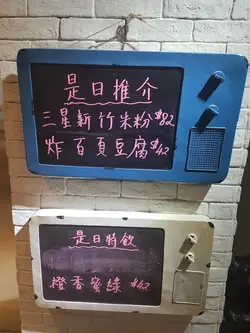 是日推介
三星新竹米粉 $82
炸百頁豆腐 $42
是日特飲
橙香蜜綠 $42